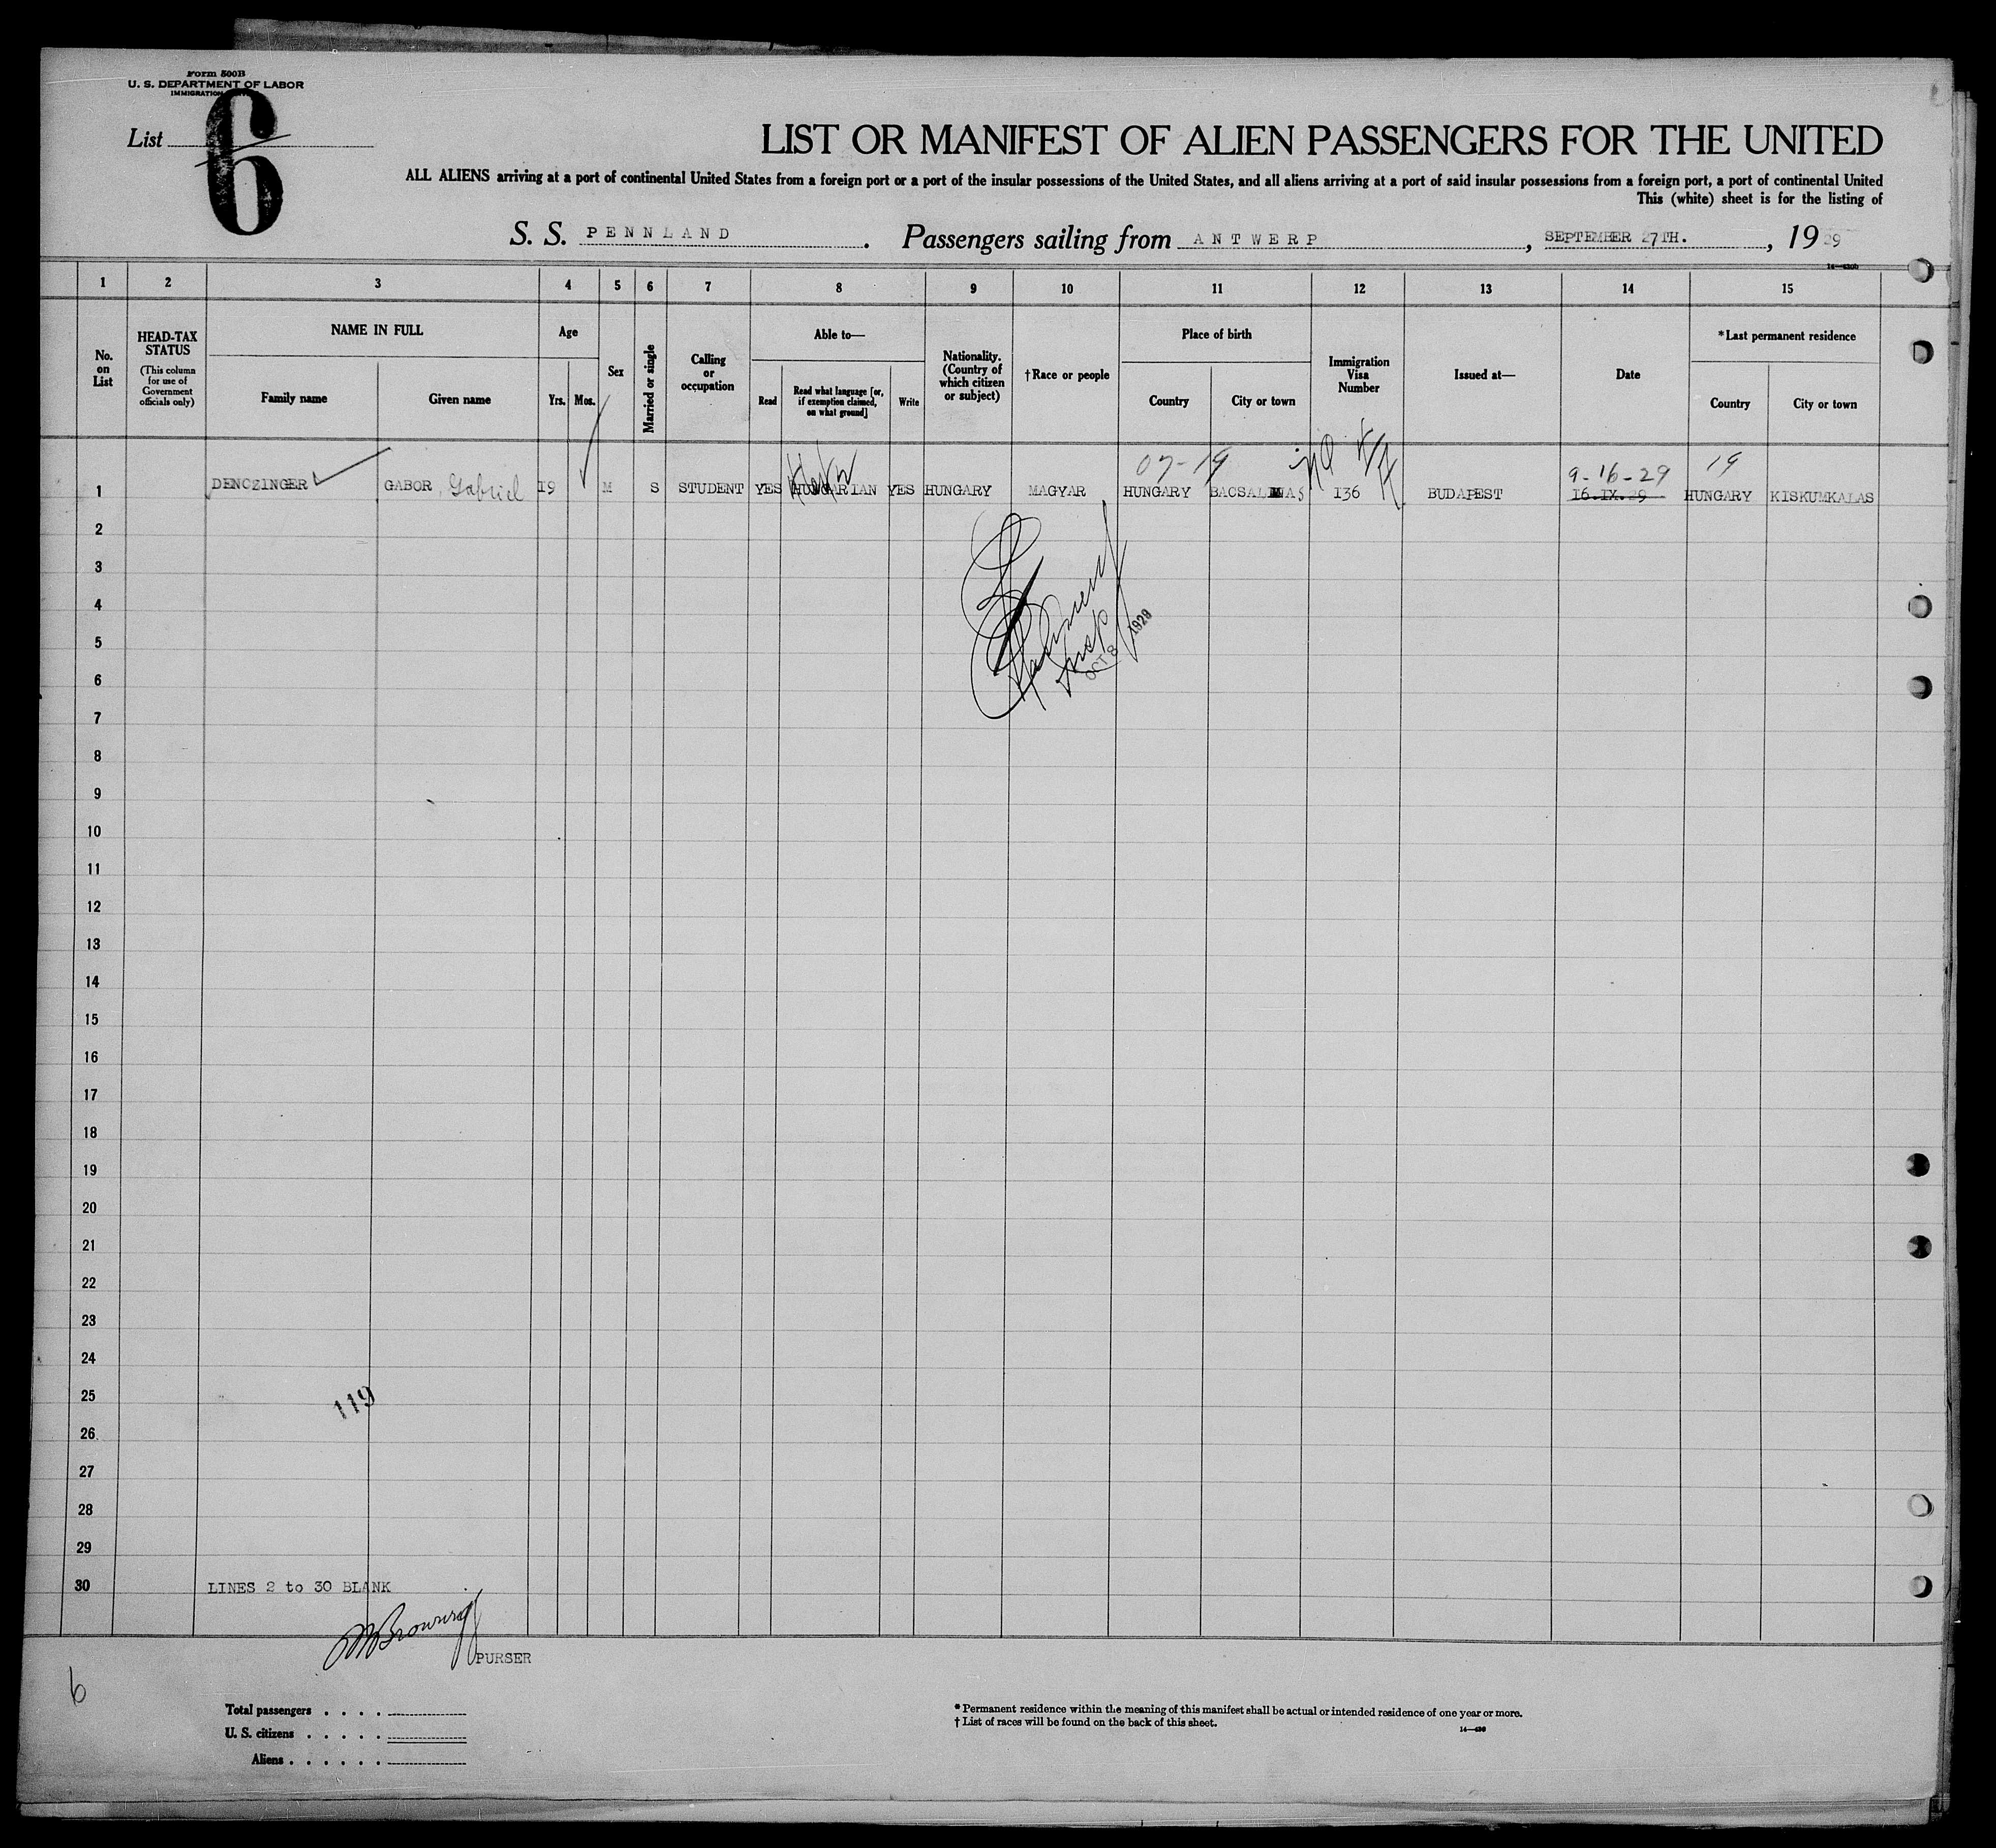 Form 500B
U. S. DEPARTMENT OF LABOR
IMMIGRATION
List 6
LIST OR MANIFEST OF ALIEN PASSENGERS FOR THE UNITED
ALL ALIENS arriving at a port of continental United States from a foreign port or a port of the insular possessions of the United States, and all aliens arriving at a port of said insular possessions from a foreign port, a port of continental United
This (white) sheet is for the listing of
S. S. PENNLAND. Passengers sailing from ANTWERP, SEPTEMBER 27TH., 1929
1 2 3 4 5 6 7 8 9 10 11 12 13 14 15
No. on List
HEAD-TAX STATUS
(This column for use of Government officials only)
NAME IN FULL
Family name
Given name
Age
Yrs. Mos.
Sex
Married or single
Calling or occupation
Able to—
Read
Read what language [or, if exemption claimed, on what ground]
Write
Nationality. (Country of which citizen or subject)
†Race or people
Place of birth
Country
City or town
Immigration Visa Number
Issued at—
Date
*Last permanent residence
Country
City or town
07-19 9-16-29 19
1 DENCZINGER GABOR Gabriel 19 M S STUDENT YES HUNGARIAN YES HUNGARY MAGYAR HUNGARY 136 BUDAPEST 16-IX-29 HUNGARY KISKUMKALAS
2
3
4
5
Insp
OCT 8 1929
6
7
8
9
10
11
12
13
14
15
16
17
18
19
20
21
22
23
24
25
119
26
27
28
29
30 LINES 2 to 30 BLANK
Browning
PURSER
6
Total passengers . . . .
U. S. citizens . . . . .
Aliens . . . . . .
* Permanent residence within the meaning of this manifest shall be actual or intended residence of one year or more.
† List of races will be found on the back of this sheet.